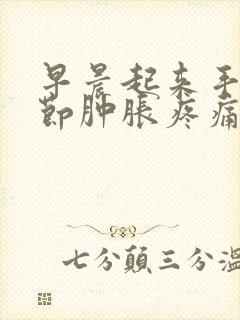 早晨起来手
节肿胀疼痛
七分颠三分温